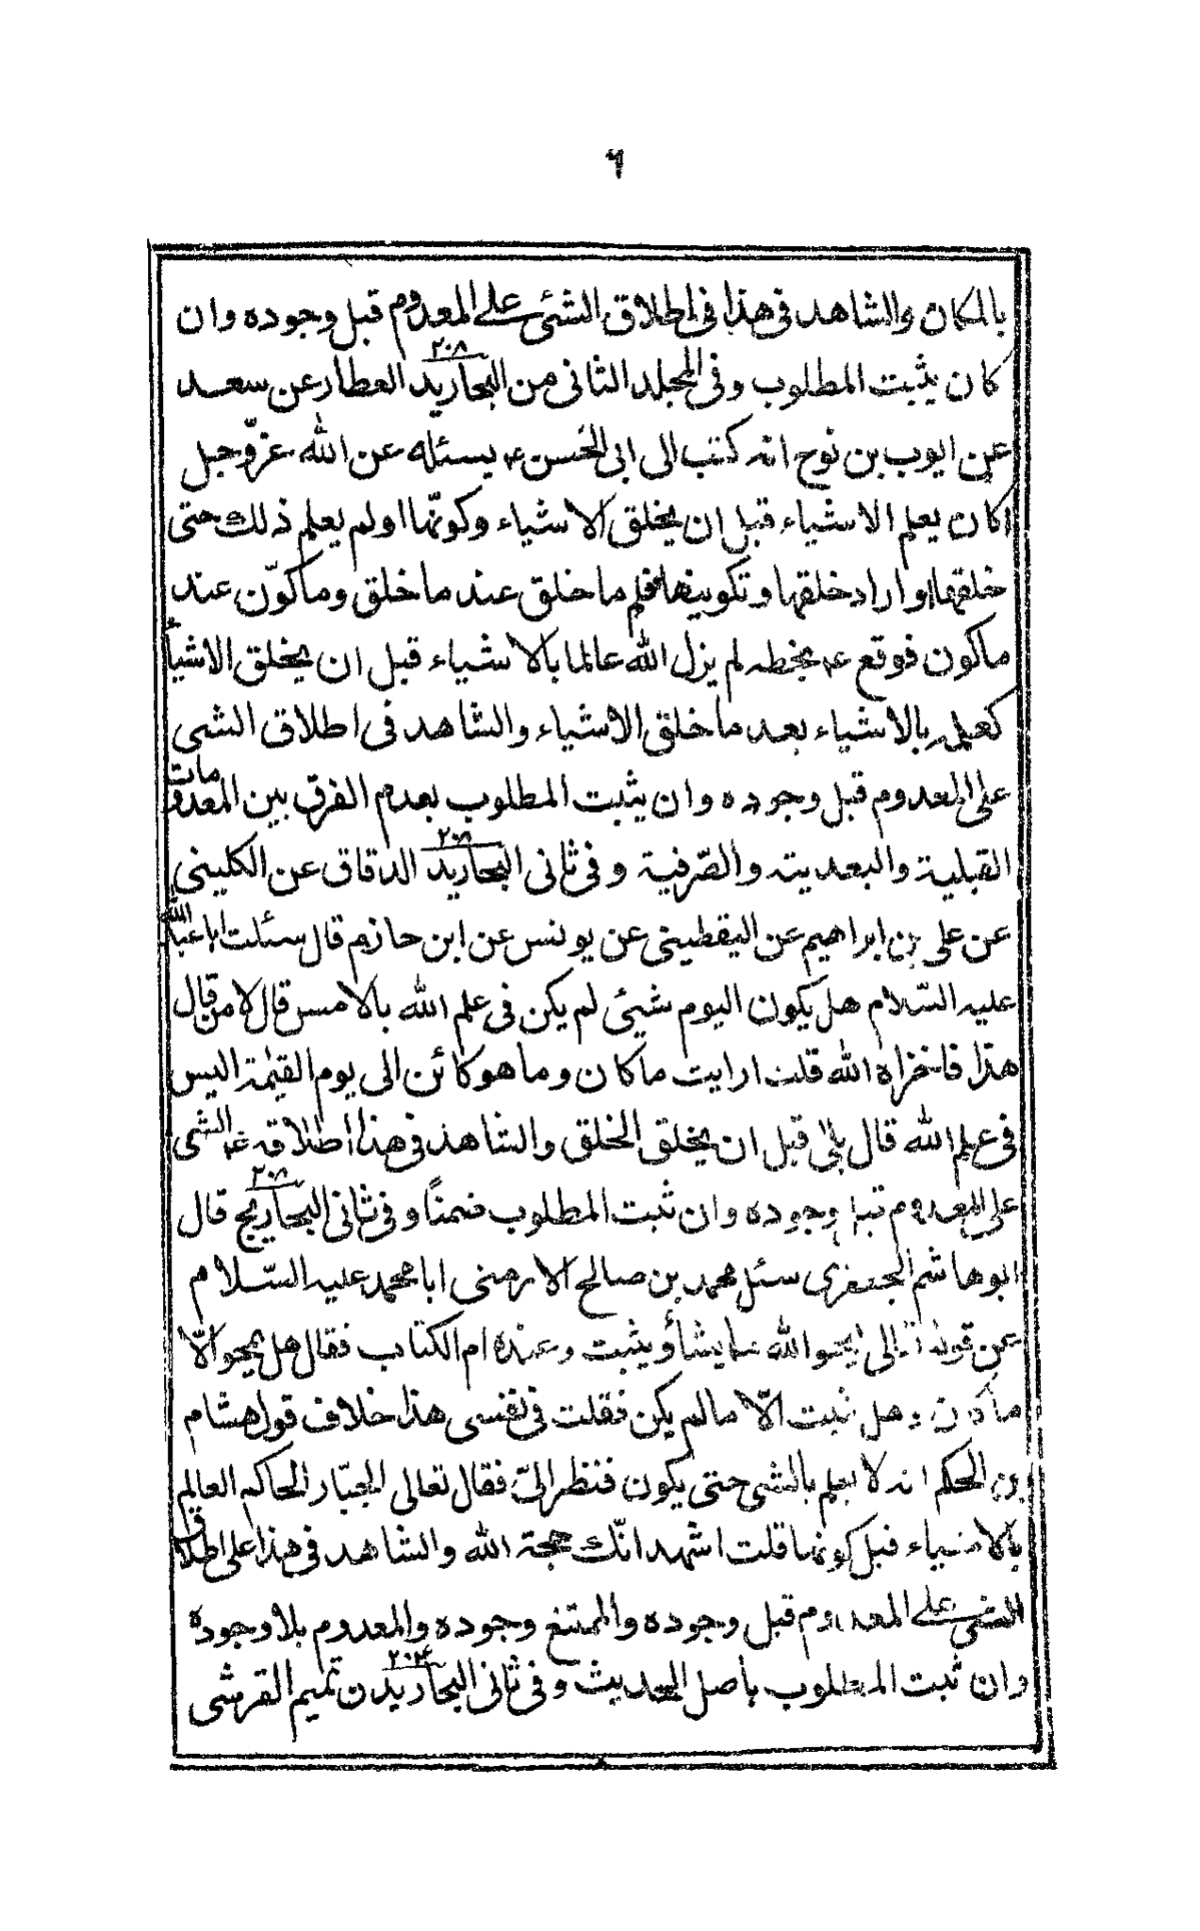 ٦
بالمكان والشاهد فى هذا فى اطلاق الشئ على المعدوم قبل وجوده وان
كان يثبت المطلوب وفى المجلد الثانى من البحار ٢٠٨ يد العطار عن سعد
عن ايوب بن نوح انه كتب الى ابى الحسن ع يسئله عن الله عزّ وجل
اكان يعلم الاشياء قبل ان يخلق الاشياء وكونّها اولم يعلم ذلك حتى
خلقها واراد خلقها وتكوينها فعلم ما خلق عند ما خلق وما كوّن عند
ما كون فوقع ع بخطه لم يزل الله عالما بالاشياء قبل ان يخلق الاشياء
كعلمه بالاشياء بعد ما خلق الاشياء والشاهد فى اطلاق الشى
على المعدوم قبل وجوده وان يثبت المطلوب بعدم الفرق بين المعدومات
القبلية والبعدية والصّرفية وفى ثانى البحار ٢٠٨ يد الدقاق عن الكلينى
عن على بن ابراهيم عن اليقطينى عن يونس عن ابن حازم قال سئلت ابا عبد الله
عليه السّلام هل يكون اليوم شيئ لم يكن فى علم الله بالامس قال لا من قال
هذا فاخزاه الله قلت ارايت ما كان وما هو كائن الى يوم القيٰمة اليس
فى علم الله قال بلى قبل ان يخلق الخلق والشاهد فى هذا اطلاقه ع الشى
على المعدوم قبل وجوده وان ثبت المطلوب ضمناً وفى ثانى البحار ٢٠٨ يج قال
ابو هاشم الجعفرى سئل محمد بن صالح الارمنى ابا محمد عليه السّلام
عن قوله تعالى يمحو الله ما يشاء ويثبت وعنده ام الكتاب فقال هل يمحو الّا
ما كان وهل يثبت الّا ما لم يكن فقلت فى نفسى هذا خلاف قول هشام
بن الحكم انه لا يعلم بالشى حتى يكون فنظر الىّ فقال تعالى الجبّار الحاكم العالم
بالاشياء قبل كونها قلت اشهد انّك حجة الله والشاهد فى هذا على اطلاق
الشى على المعدوم قبل وجوده والممتنع وجوده والمعدوم بلا وجوده
وان ثبت المطلوب باصل الحديث وفى ثانى البحار ٢٠٢ يد ن تميم القرشى